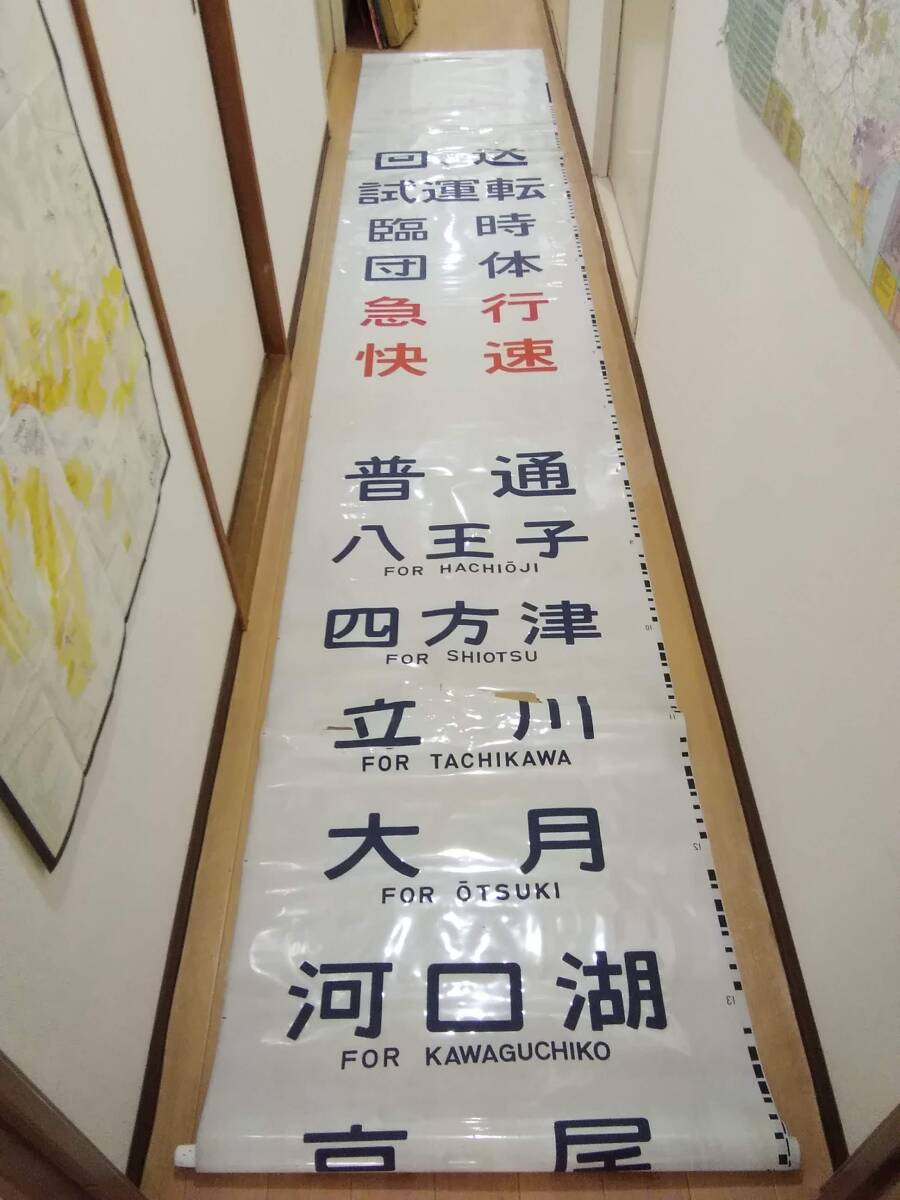 回送
試運転
臨時
団体
急行
快速
普通
八王子
FOR HACHIŌJI
四方津
FOR SHIOTSU
立川
FOR TACHIKAWA
大月
FOR ŌTSUKI
河口湖
FOR KAWAGUCHIKO
高尾
10
11
12
13